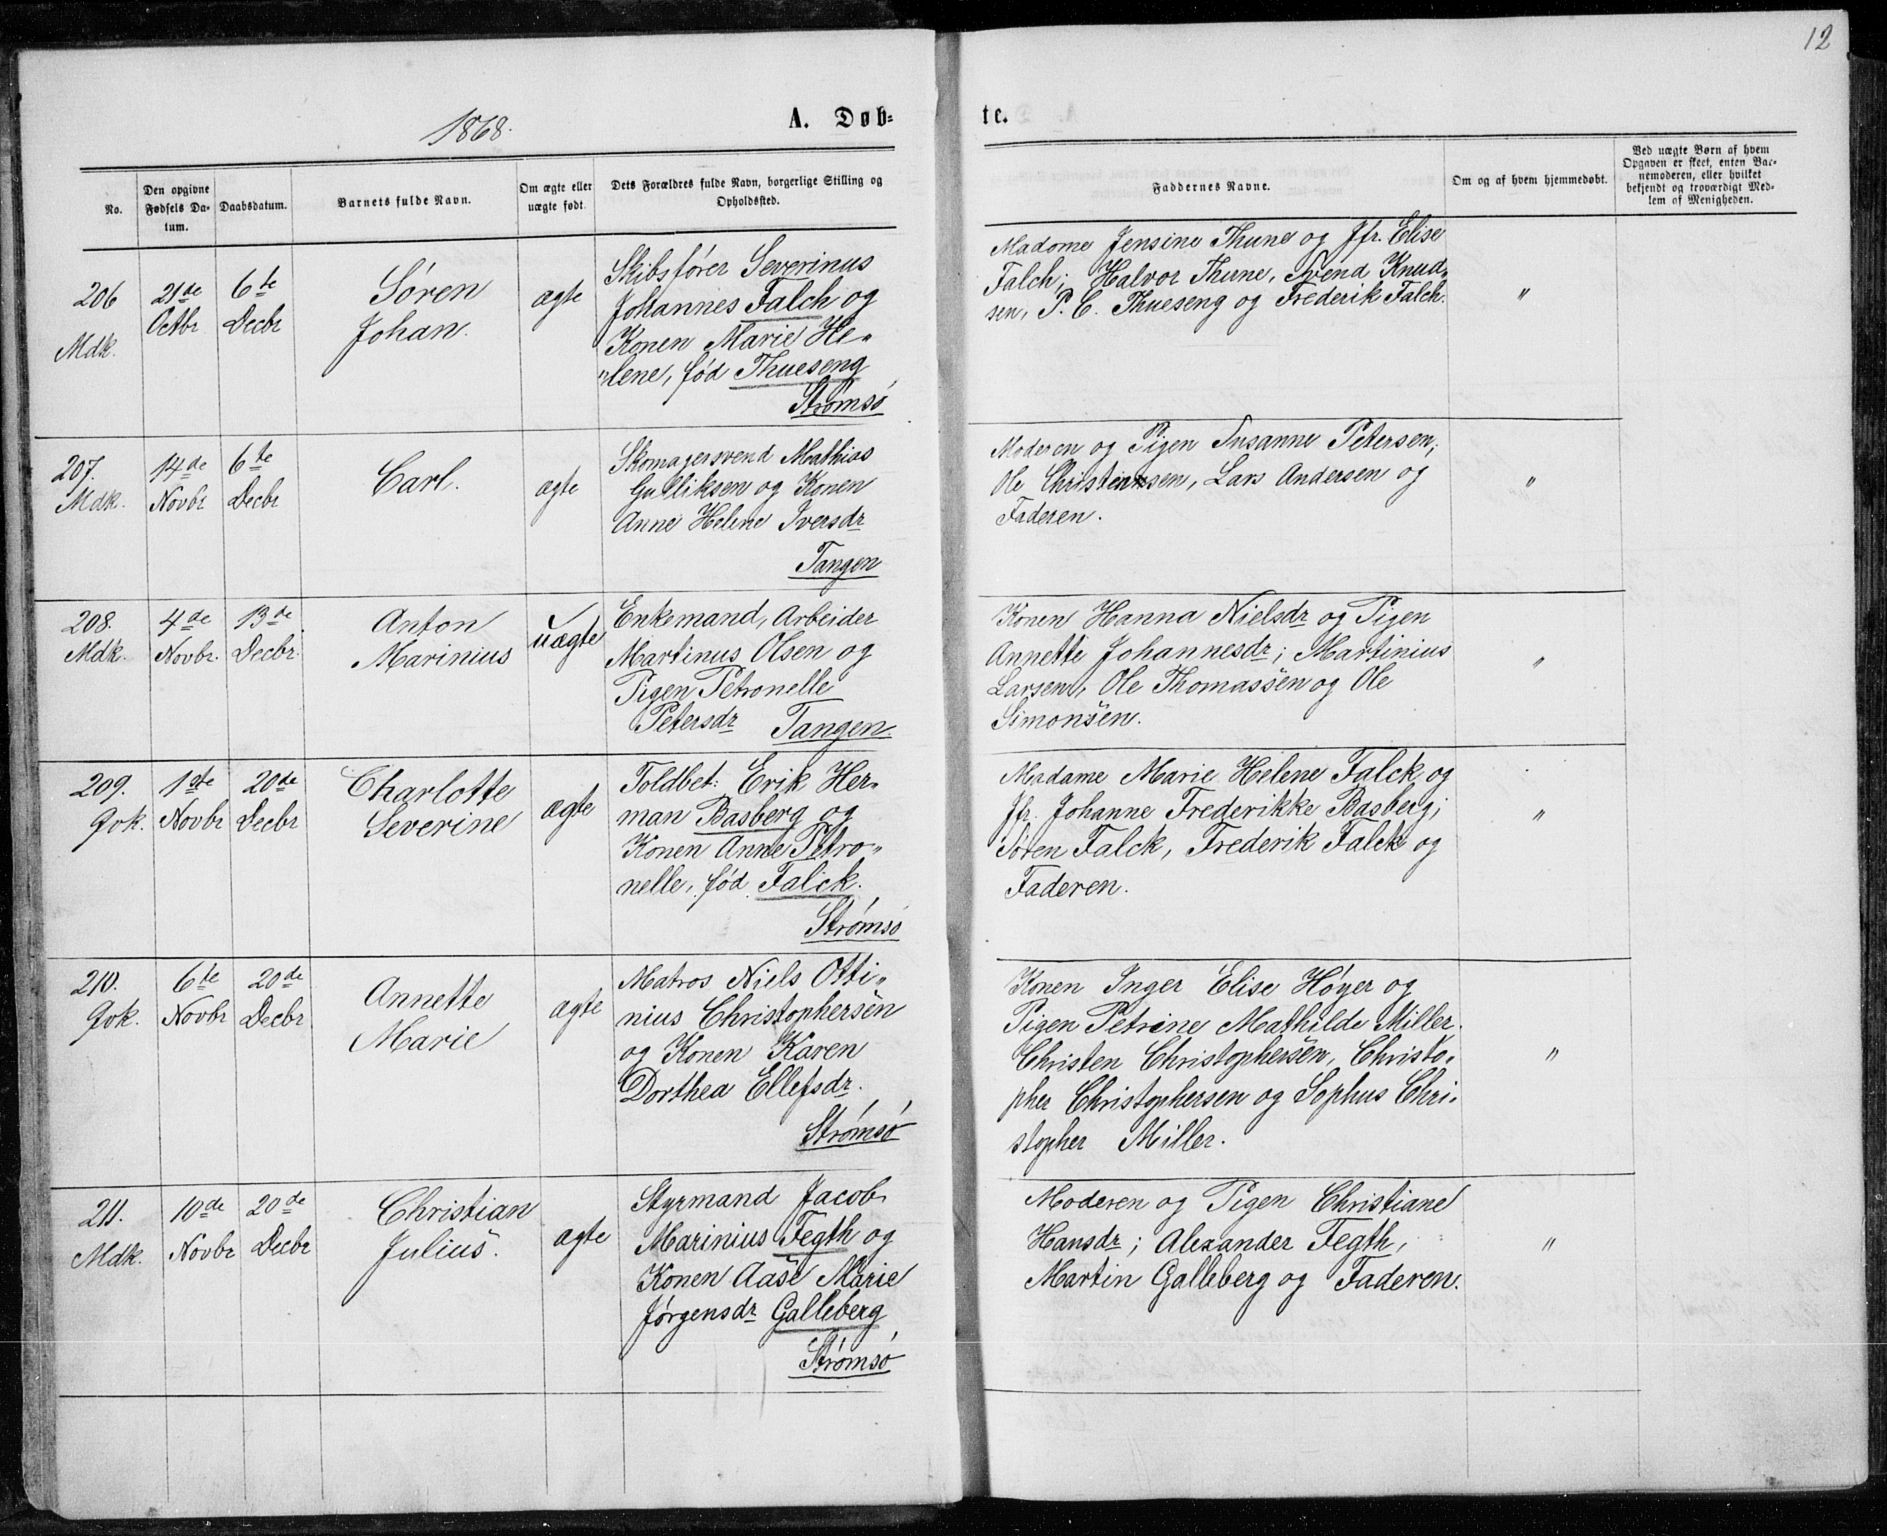 12
1868.
A. Døb-
te.
No.
Den opgivne Fødsels Da-
tum.
Daabsdatum.
Barnets fulde Navn.
Om ægte eller
uægte født.
Dets Forældres fulde Navn, borgerlige Stilling og
Opholdssted.
Faddernes Navne.
Om og af hvem hjemmedøbt.
Ved uægte Børn af hvem
Opgaven er skeet, enten Bar-
nemoderen, eller hvilket
bekjendt og troværdigt Med-
lem af Menigheden.
206
Mdk.
21de
Octbr
6te
Decbr
Søren
Johan.
ægte
Skibsfører Severinus
Johannes Falch og
Konen Marie He„
„lene, fød Thueseng
Strømsø
Madame Jensine Thune og Jfr. Elise
Falch; Halvor Thune, Svend Knud„
sen, P. C. Thueseng og Frederik Falch.
"
207.
Mdk.
14de
Novbr
6te
Decbr
Carl.
ægte
Skomagersvend Mathias
Gulliksen og Konen
Anne Helene Iversdr
Tangen
Moderen og Pigen Susanne Petersen;
Ole Christensen, Lars Andersen og
Faderen.
"
208.
Mdk.
4de
Novbr.
13de
Decbr.
Anton
Marinius
uægte
Enkemand, Arbeider
Martinus Olsen og
Pigen Petronelle
Petersdr Tangen.
Konen Hanna Nielsdr og Pigen
Annette Johannesdr; Martinius
Larsen, Ole Thomassen og Ole
Simonsen.
"
209.
Gvk.
1ste
Novbr
20de
Decbr
Charlotte
Severine
ægte
Toldbet: Erik Her„
man Basberg og
Konen Anne Petro„
nelle, fød Falck.
Strømsø
Madame Marie Helene Falck og
Jfr. Johanne Frederikke Basberg;
Søren Falck, Frederik Falck og
Faderen.
"
210.
Gvk.
6te
Novbr
20de
Decbr
Annette
Marie
ægte
Matros Niels Otti„
nius Christophersen
og Konen Karen
Dorthea Ellefsdr.
Strømsø
Konen Inger Elise Høyer og
Pigen Petrine Mathilde Miller.
Christen Christophersen, Christo„
pher Christophersen og Sophus Chri„
stopher Miller.
"
211.
Mdk.
10de
Novbr
20de
Decbr
Christian
Julius.
ægte
Styrmand Jacob
Marinius Fegth og
Konen Aase Marie
Jørgensdr Galleberg
Strømsø
Moderen og Pigen Christiane
Hansdr; Alexander Fegth,
Martin Galleberg og Faderen.
"